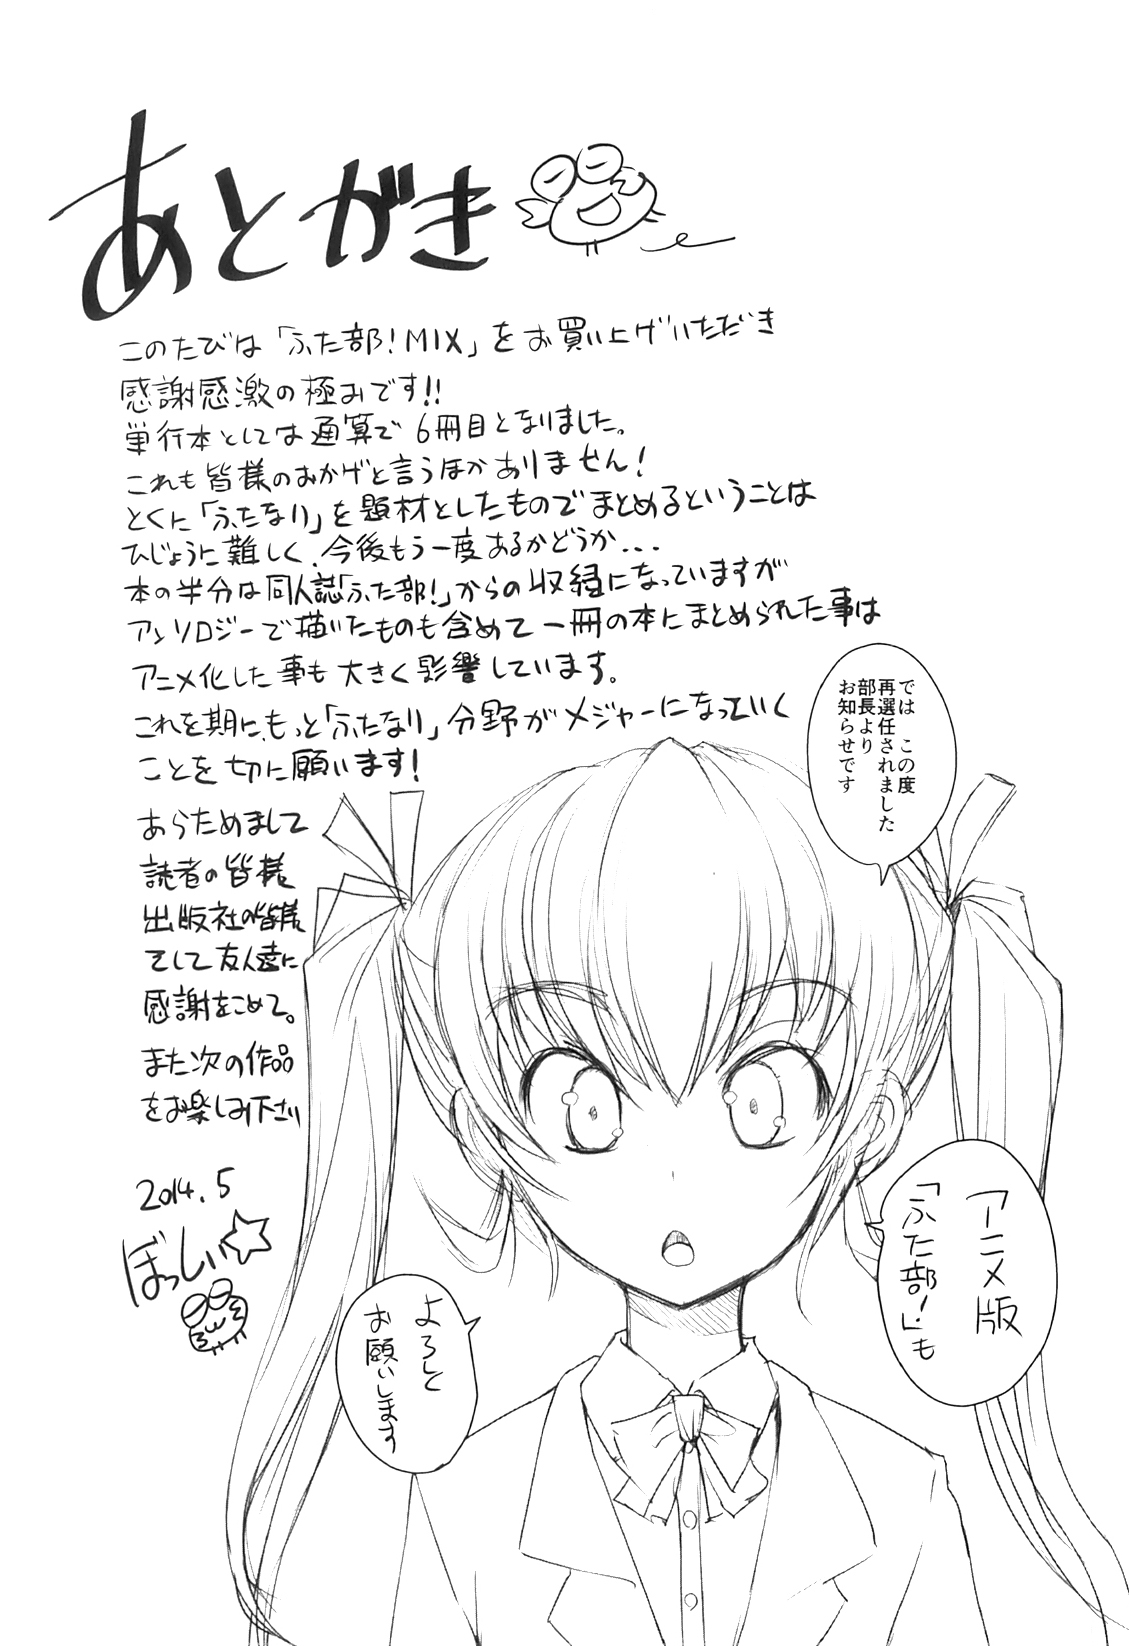 あとがき
このたびは「ふた部!MIX」をお買い上げいただき
感謝感激の極みです!!
単行本としては通算で6冊目となりました。
これも皆様のおかげと言うほかありません!
とくに「ふたなり」を題材としたものでまとめるということは
ひじょうに難しく、今後もう一度あるかどうか...
本の半分は同人誌「ふた部!」からの収録になっていますが
アンソロジーで描いたものも含めて一冊の本にまとめられた事は
アニメ化した事も大きく影響しています。
これを期に、もっと「ふたなり」分野がメジャーになっていく
ことを切に願います!
あらためまして
読者の皆様
出版社の皆様
そして友人達に
感謝をこめて。
また次の作品
をお楽しみ下さい
2014.5
ぼっしぃ☆
では この度
再選任されました
部長より
お知らせです
アニメ版
「ふた部!」も
よろしく
お願いします